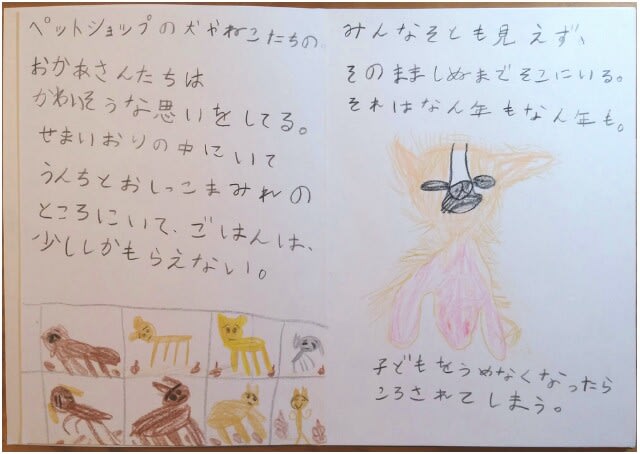 ペットショップの犬やねこたちの、
おかあさんたちは
かわいそうな思いをしてる。
せまいおりの中にいて
うんちとおしっこまみれの
ところにいて、ごはんは、
少ししかもらえない。
みんなそとも見えず、
そのまましぬまでそこにいる。
それはなん年もなん年も。
子どもをうめなくなったら
ころされてしまう。